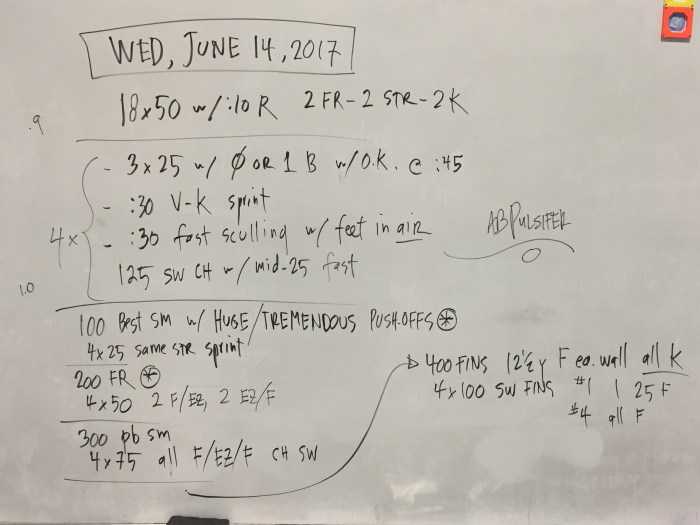 WED, JUNE 14, 2017
18x50 w/ :10 R 2 FR - 2 STR - 2 K
.9
- 3x25 w/ Ø OR 1 B w/ O.K. @ :45
- :30 V-K sprint
4x - :30 fast sculling w/ feet in air
125 SW CH w/ mid-25 fast
ABPULSIFER
1.0
100 Best SM w/ HUGE/TREMENDOUS PUSH-OFFS *
4x25 same STR sprint
200 FR *
4x50 2 F/EZ, 2 EZ/F
300 pb sm
4x75 all F/EZ/F CH SW
400 FINS 12½ y F ea. wall all K
4x100 SW FINS #1 1 25 F
#4 all F